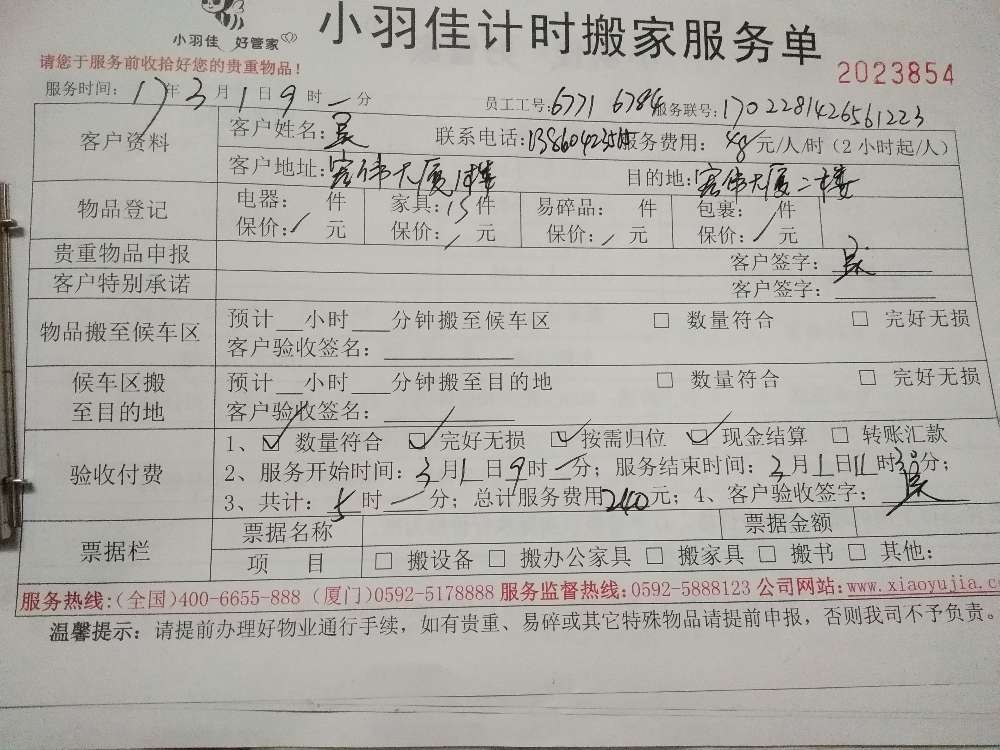 小羽佳 好管家
小羽佳计时搬家服务单
请您于服务前收拾好您的贵重物品！
2023854
服务时间：17年3月1日9时一分 员工工号：6771 6784 服务联号：1702281426561223
客户资料
客户姓名：吴 联系电话： 服务费用：48元/人/时（2小时起/人）
客户地址：宏伟大厦1楼 目的地：宏伟大厦二楼
物品登记
电器： 件 家具：15件 易碎品： 件 包裹： 件
保价：/元 保价：/元 保价：/元 保价：/元
贵重物品申报 客户签字：吴
客户特别承诺 客户签字：
物品搬至候车区
预计__小时___分钟搬至候车区 □ 数量符合 □ 完好无损
客户验收签名：
候车区搬至目的地
预计__小时___分钟搬至目的地 □ 数量符合 □ 完好无损
客户验收签名：
验收付费
1、☑ 数量符合 ☑ 完好无损 ☑ 按需归位 ☑ 现金结算 □ 转账汇款
2、服务开始时间：3月1日9时一分；服务结束时间：3月1日11时30分；
3、共计：5时一分；总计服务费用240元；4、客户验收签字：吴
票据栏
票据名称 票据金额
项 目 □ 搬设备 □ 搬办公家具 □ 搬家具 □ 搬书 □ 其他：
服务热线:(全国)400-6655-888 (厦门)0592-5178888 服务监督热线:0592-5888123 公司网站:www.xiaoyujia.c
温馨提示：请提前办理好物业通行手续，如有贵重、易碎或其它特殊物品请提前申报，否则我司不予负责。